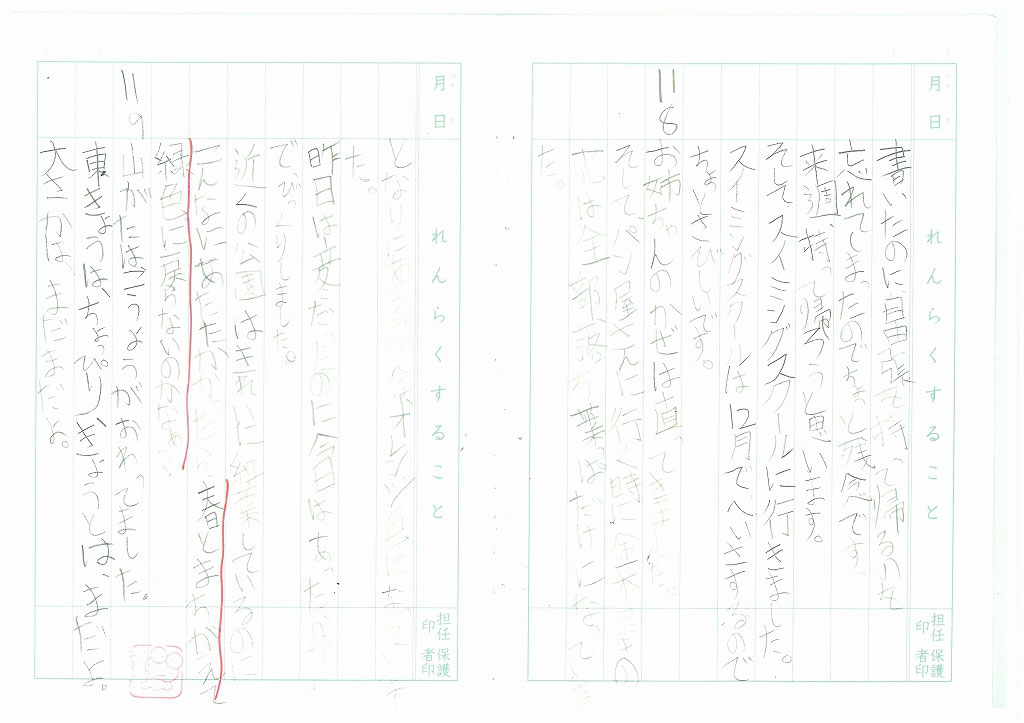 月日
れんらくすること
担任印
保護者印
書いたのに自由張を持って帰るのを
忘れてしまったのでちょっと残念です。
来週、持って帰ろうと思います。
そしてスイミングスクールに行きました。
スイミングスクールは12月でへいさするので
ちょいさびしいです。
11 8
お姉ちゃんのかぜは直ってきました。
そしてパン屋さんに行く時に金木
は全部落ち葉っぱだけになってい
た。
月日
れんらくすること
担任印
保護者印
となりにある オレンジ色になってい
た。
昨日は変だったのに今日はあったか
で、びっくりしました。
近くの公園はきれいに紅葉しているのに
こんなにあたたかかったら春とまちがえて
緑色に戻らないのかなぁ
11 9
山がたはこうようがおわってました。
東きょうは、ちょっぴり、きょうとは、まだと。
大さかは、まだまだよ。